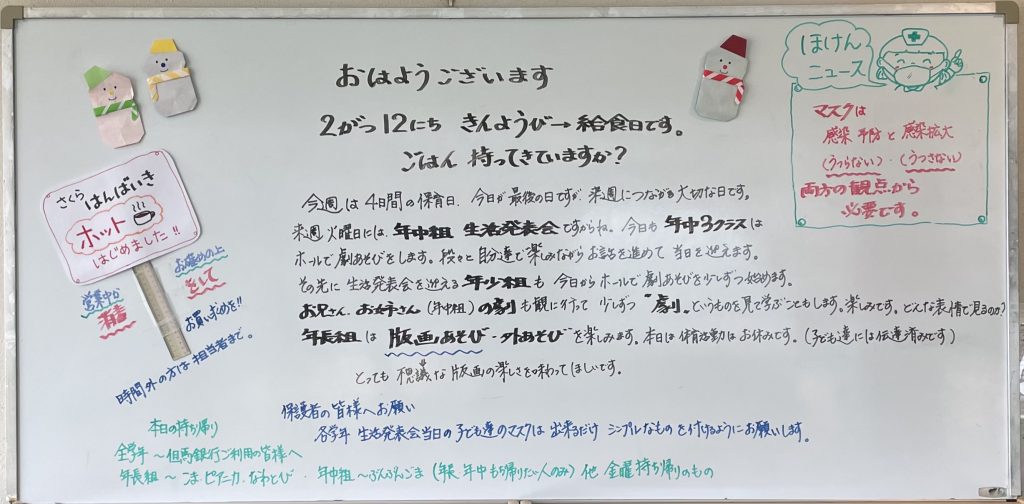 おはようございます
2がつ12にち きんようび→給食日です。
ごはん 持ってきていますか?
今週は4日間の保育日、今日が最後の日ですが、来週につながる大切な日です。
来週火曜日には、年中組 生活発表会ですからね。今日も年中3クラスは
ホールで劇あそびをします。段々と自分達で楽しみながらお話を進めて 当日を迎えます。
その先に生活発表会を迎える年少組も 今日からホールで劇あそびを少しずつ始めます。
お兄さん、お姉さん(年中組)の劇も観に行って 少しずつ "劇"というものを見て学ぶこともします。楽しみです。どんな表情で見るのか?
年長組は 版画あそび・外あそびを楽しみます。本日は体育活動はお休みです。(子ども達には伝達済みです)
とっても不思議な版画の楽しさを味わってほしいです。
保護者の皆様へお願い
各学年 生活発表会当日の子ども達のマスクは 出来るだけ シンプルなものを付けるようにお願いします。
本日の持ち帰り
全学年〜但馬銀行ご利用の皆様へ
年長組〜こま・ピアニカ・なわとび・年中組〜ぶんぶんごま(年長 年中もち帰りたい人のみ)他 金曜持ち帰りのもの
さくら
はんばいき
ホット
はじめました!!
営業中が
お確めの上
お買い求めを!!
時間外の方は担当者まで。
ほけん
ニュース
マスクは
感染予防と感染拡大
(うつらない)・(うつさない)
両方の観点から
必要です。